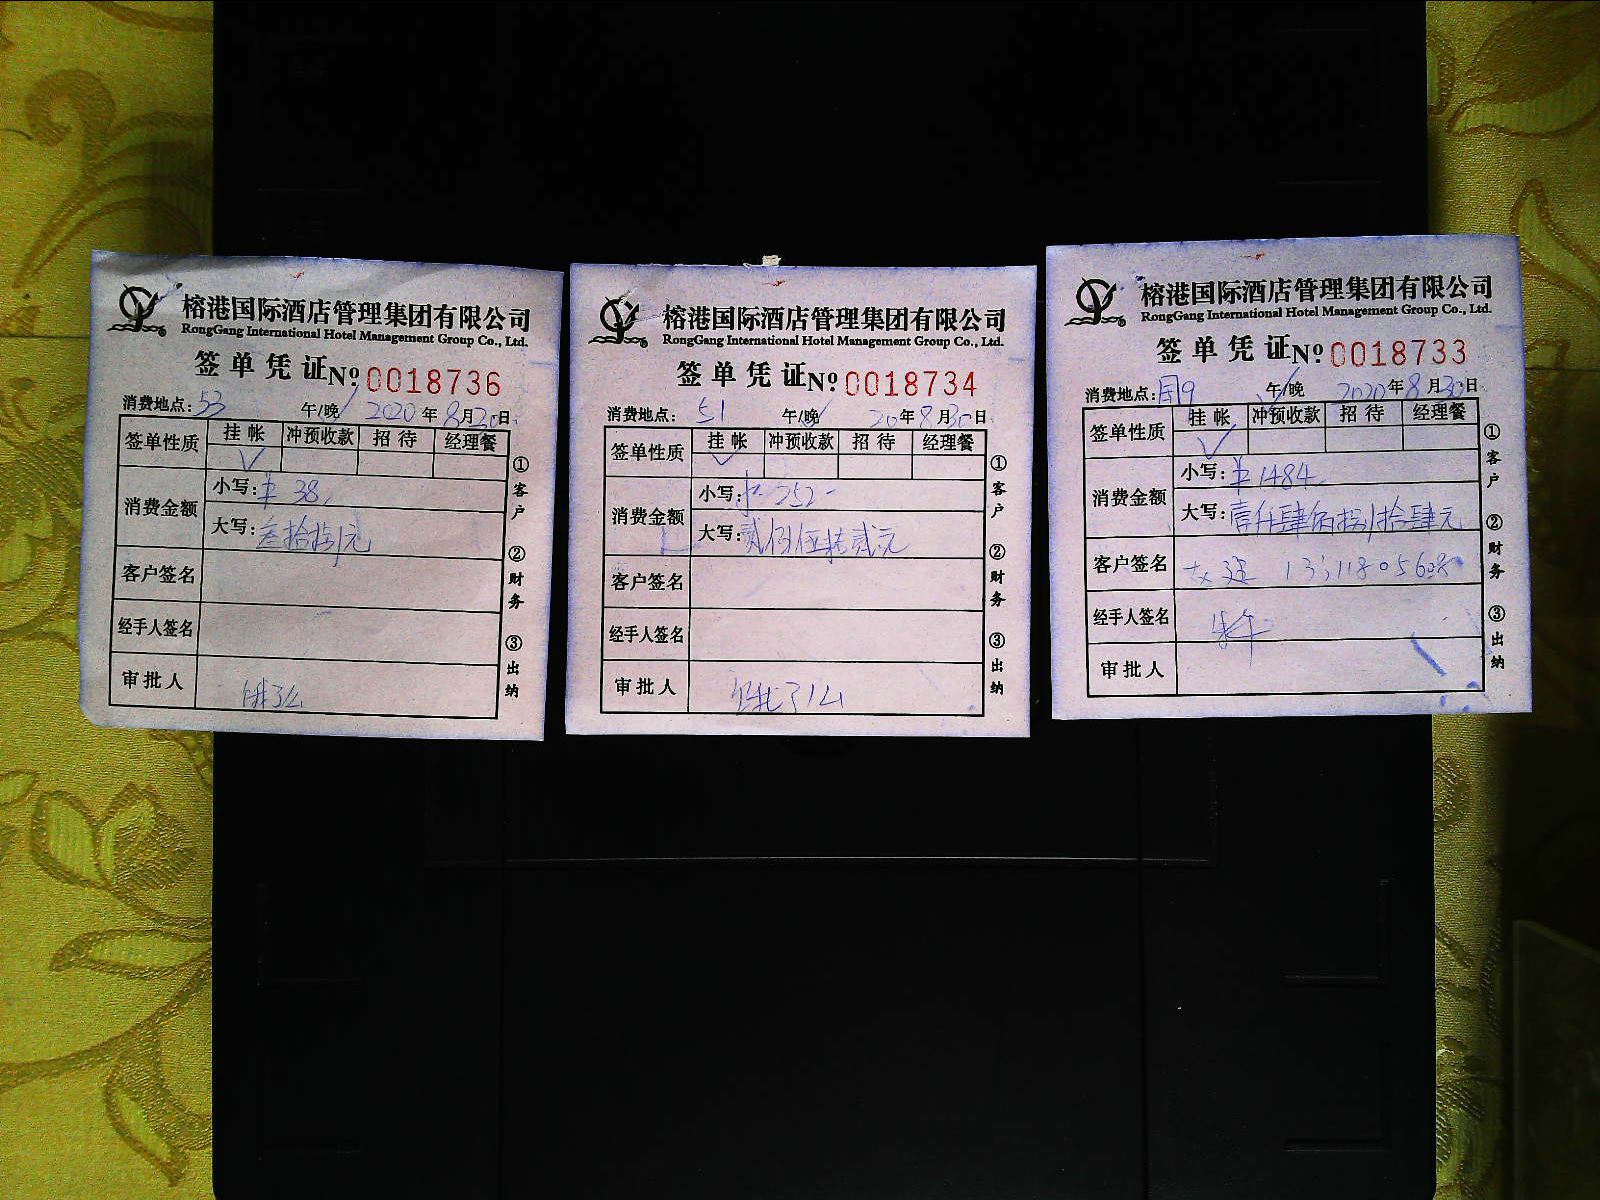 榕港国际酒店管理集团有限公司
RongGang International Hotel Management Group Co., Ltd.
签单凭证 №0018736
消费地点：53 午/晚 2020年8月30日
签单性质 挂帐 冲预收款 招待 经理餐
✓
消费金额 小写：¥38
大写：叁拾捌元
客户签名
经手人签名
审批人 饿了么
①客户 ②财务 ③出纳
榕港国际酒店管理集团有限公司
RongGang International Hotel Management Group Co., Ltd.
签单凭证 №0018734
消费地点：51 午/晚 20年8月30日
签单性质 挂帐 冲预收款 招待 经理餐
✓
消费金额 小写：¥252-
大写：贰佰伍拾贰元
客户签名
经手人签名
审批人 饿了么
①客户 ②财务 ③出纳
榕港国际酒店管理集团有限公司
RongGang International Hotel Management Group Co., Ltd.
签单凭证 №0018733
消费地点： 午/晚 2020年8月30日
签单性质 挂帐 冲预收款 招待 经理餐
✓
消费金额 小写：¥1484
大写：壹仟肆佰捌拾肆元
客户签名
经手人签名
审批人
①客户 ②财务 ③出纳